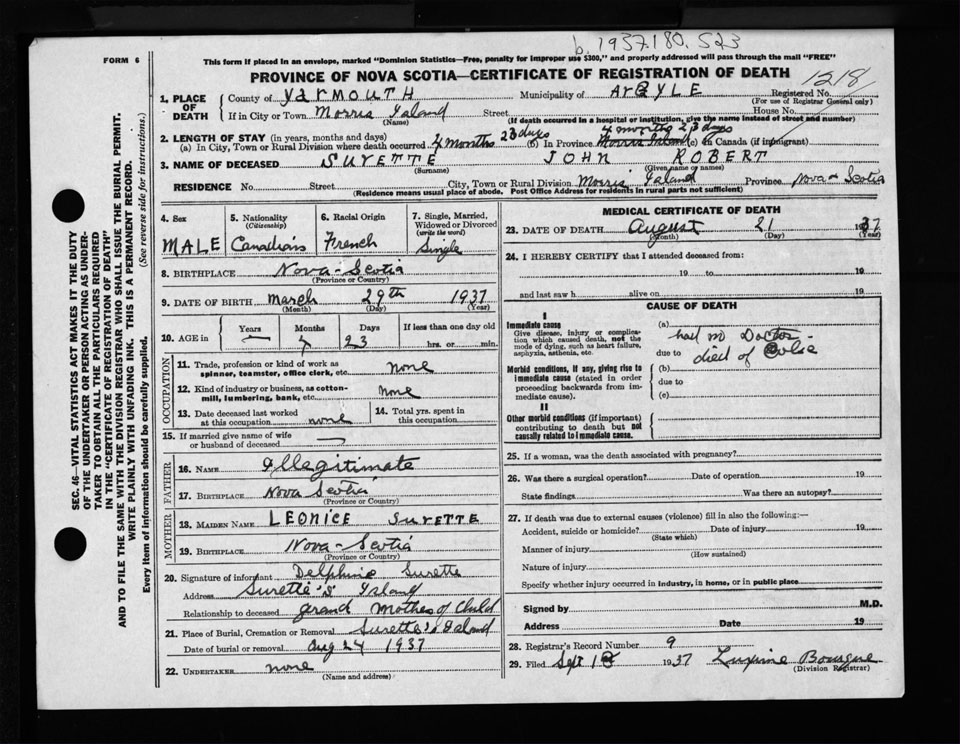 b. 1937.180.523
FORM 6
This form if placed in an envelope, marked "Dominion Statistics—Free, penalty for improper use $300," and properly addressed will pass through the mail "FREE"
PROVINCE OF NOVA SCOTIA—CERTIFICATE OF REGISTRATION OF DEATH
1218
1. PLACE OF DEATH
County of YARMOUTH Municipality of ARGYLE Registered No.
(For use of Registrar General only)
If in City or Town Morris Island Street House No.
(Name) (If death occurred in a hospital or institution, give the name instead of street and number)
2. LENGTH OF STAY (in years, months and days)
4 months 23 days
(a) In City, Town or Rural Division where death occurred 4 months 23 days (b) In Province Morris Island (c) In Canada (if immigrant)
3. NAME OF DECEASED SURETTE JOHN ROBERT
(Surname) (Given name or names)
RESIDENCE No. Street City, Town or Rural Division Morris Island Province Nova Scotia
(Residence means usual place of abode. Post Office Address for residents in rural parts not sufficient)
4. Sex
MALE
5. Nationality
(Citizenship)
Canadian
6. Racial Origin
French
7. Single, Married, Widowed or Divorced
(write the word)
Single
8. BIRTHPLACE Nova-Scotia
(Province or Country)
9. DATE OF BIRTH March 29th 1937
(Month) (Day) (Year)
10. AGE in Years Months Days If less than one day old
23 hrs. or min.
OCCUPATION
11. Trade, profession or kind of work as spinner, teamster, office clerk, etc. none
12. Kind of industry or business, as cotton-mill, lumbering, bank, etc. none
13. Date deceased last worked at this occupation none
14. Total yrs. spent in this occupation
15. If married give name of wife or husband of deceased
FATHER
16. NAME Illegitimate
17. BIRTHPLACE Nova Scotia
(Province or Country)
MOTHER
18. MAIDEN NAME LEONICE SURETTE
19. BIRTHPLACE Nova-Scotia
(Province or Country)
20. Signature of informant Delphine Surette
Address Surette's Island
Relationship to deceased grand Mother of Child
21. Place of Burial, Cremation or Removal Surette's Island
Date of burial or removal Aug 24 1937
22. UNDERTAKER none
(Name and address)
MEDICAL CERTIFICATE OF DEATH
23. DATE OF DEATH August 21 1937
(Month) (Day) (Year)
24. I HEREBY CERTIFY that I attended deceased from
19 to 19
and last saw h alive on 19
CAUSE OF DEATH
I
Immediate cause
Give disease, injury or complication which caused death, not the mode of dying, such as heart failure, asphyxia, asthenia, etc.
Morbid conditions, if any, giving rise to immediate cause (stated in order proceeding backwards from immediate cause).
II
Other morbid conditions (if important) contributing to death but not causally related to immediate cause.
(a) had no Doctor
due to died of Colic
(b)
due to
(c)
25. If a woman, was the death associated with pregnancy?
26. Was there a surgical operation? Date of operation 19
State findings Was there an autopsy?
27. If death was due to external causes (violence) fill in also the following:—
Accident, suicide or homicide? Date of injury 19
(State which)
Manner of injury
(How sustained)
Nature of injury
Specify whether injury occurred in industry, in home, or in public place
Signed by M.D.
Address Date 19
28. Registrar's Record Number 9
29. Filed Sept 1937
(Division Registrar)
SEC. 46—VITAL STATISTICS ACT MAKES IT THE DUTY OF THE UNDERTAKER OR PERSON ACTING AS UNDERTAKER TO OBTAIN ALL THE PARTICULARS REQUIRED IN THE "CERTIFICATE OF REGISTRATION OF DEATH"
AND TO FILE THE SAME WITH THE DIVISION REGISTRAR WHO SHALL ISSUE THE BURIAL PERMIT.
WRITE PLAINLY WITH UNFADING INK. THIS IS A PERMANENT RECORD.
Every item of information should be carefully supplied. (See reverse side for instructions.)